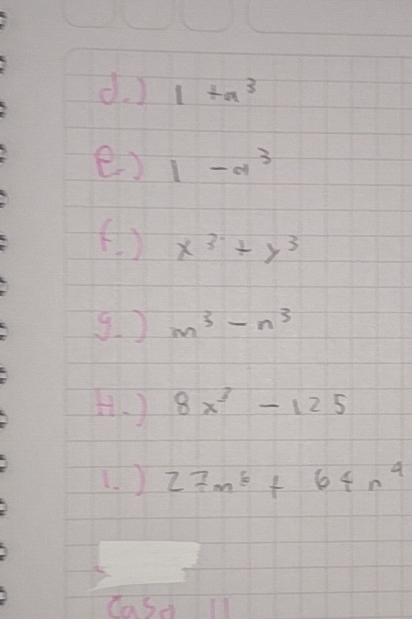 d.) 1 + a³
e.) 1 - a³
f.) x³ + y³
g.) m³ - n³
H.) 8x³ - 125
I.) 27m⁶ + 64n⁹
Caso 11